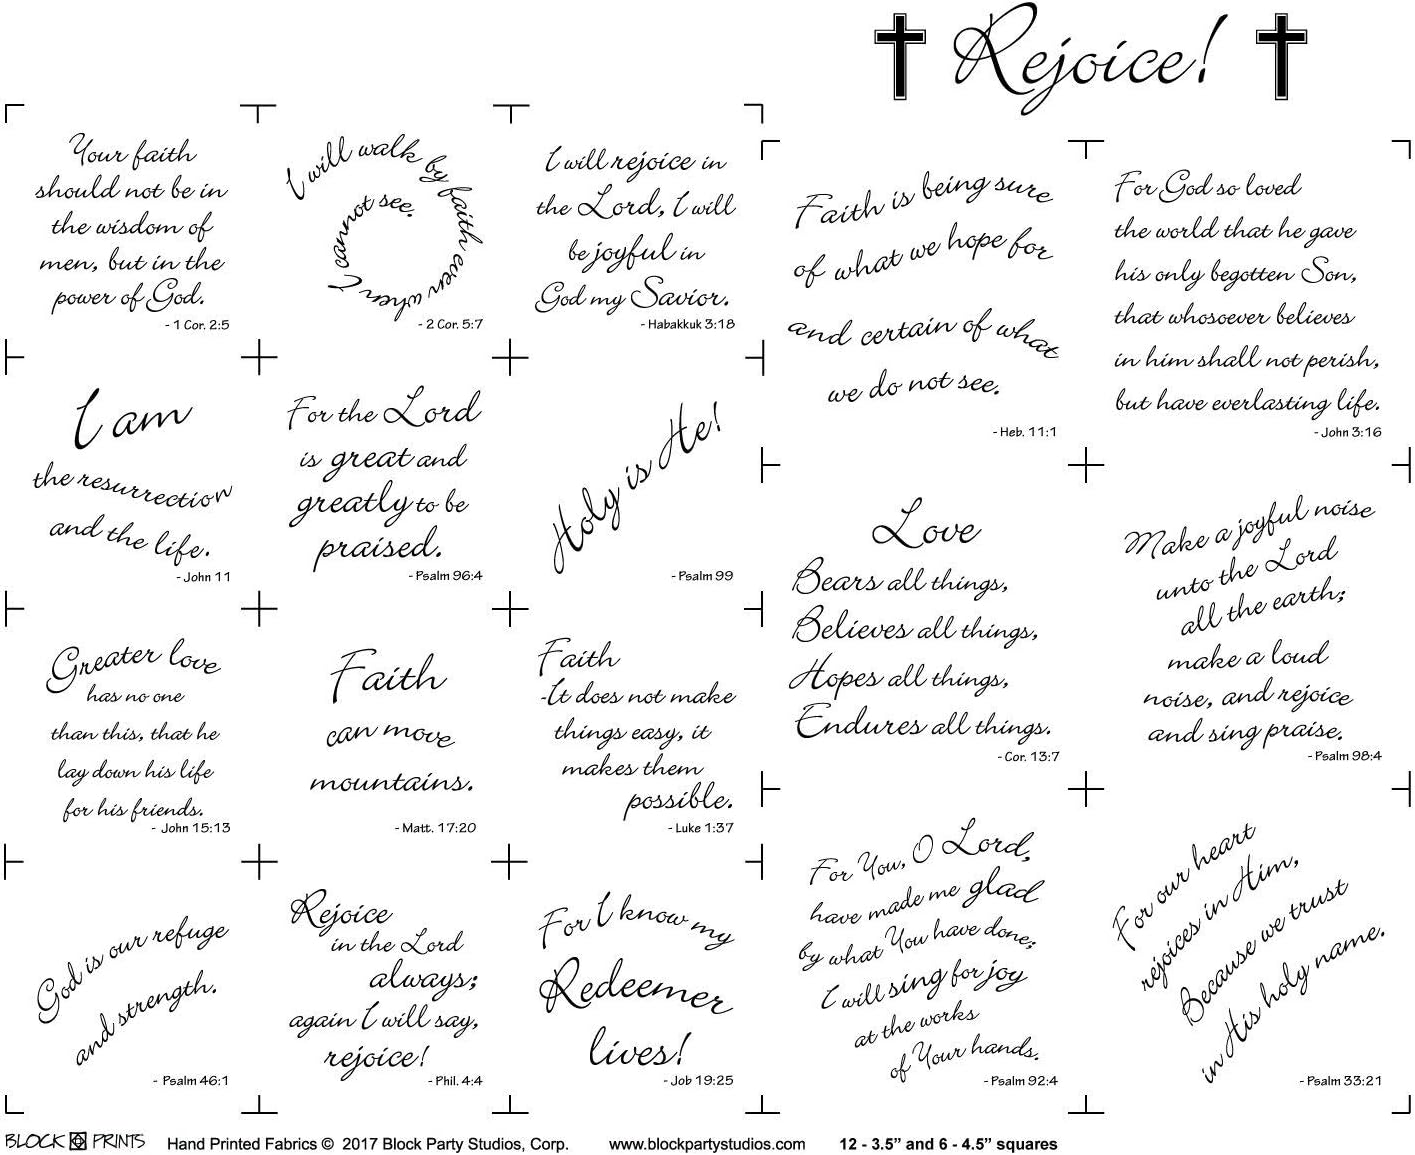 Rejoice!
Your faith
should not be in
the wisdom of
men, but in the
power of God.
- 1 Cor. 2:5
I will walk by faith even when I cannot see.
- 2 Cor. 5:7
I will rejoice in
the Lord, I will
be joyful in
God my Savior.
- Habakkuk 3:18
Faith is being sure
of what we hope for
and certain of what
we do not see.
- Heb. 11:1
For God so loved
the world that he gave
his only begotten Son,
that whosoever believes
in him shall not perish,
but have everlasting life.
- John 3:16
I am
the resurrection
and the life.
- John 11
For the Lord
is great and
greatly to be
praised.
- Psalm 96:4
Holy is He!
- Psalm 99
Love
Bears all things,
Believes all things,
Hopes all things,
Endures all things.
- Cor. 13:7
Make a joyful noise
unto the Lord
all the earth;
make a loud
noise, and rejoice
and sing praise.
- Psalm 98:4
Greater love
has no one
than this, that he
lay down his life
for his friends.
- John 15:13
Faith
can move
mountains.
- Matt. 17:20
Faith
-It does not make
things easy, it
makes them
possible.
- Luke 1:37
God is our refuge
and strength.
- Psalm 46:1
Rejoice
in the Lord
always;
again I will say,
rejoice!
- Phil. 4:4
For I know my
Redeemer
lives!
- Job 19:25
For You, O Lord,
have made me glad
by what You have done;
I will sing for joy
at the works
of Your hands.
- Psalm 92:4
For our heart
rejoices in Him,
Because we trust
in His holy name.
- Psalm 33:21
BLOCK PRINTS Hand Printed Fabrics © 2017 Block Party Studios, Corp. www.blockpartystudios.com 12 - 3.5" and 6 - 4.5" squares